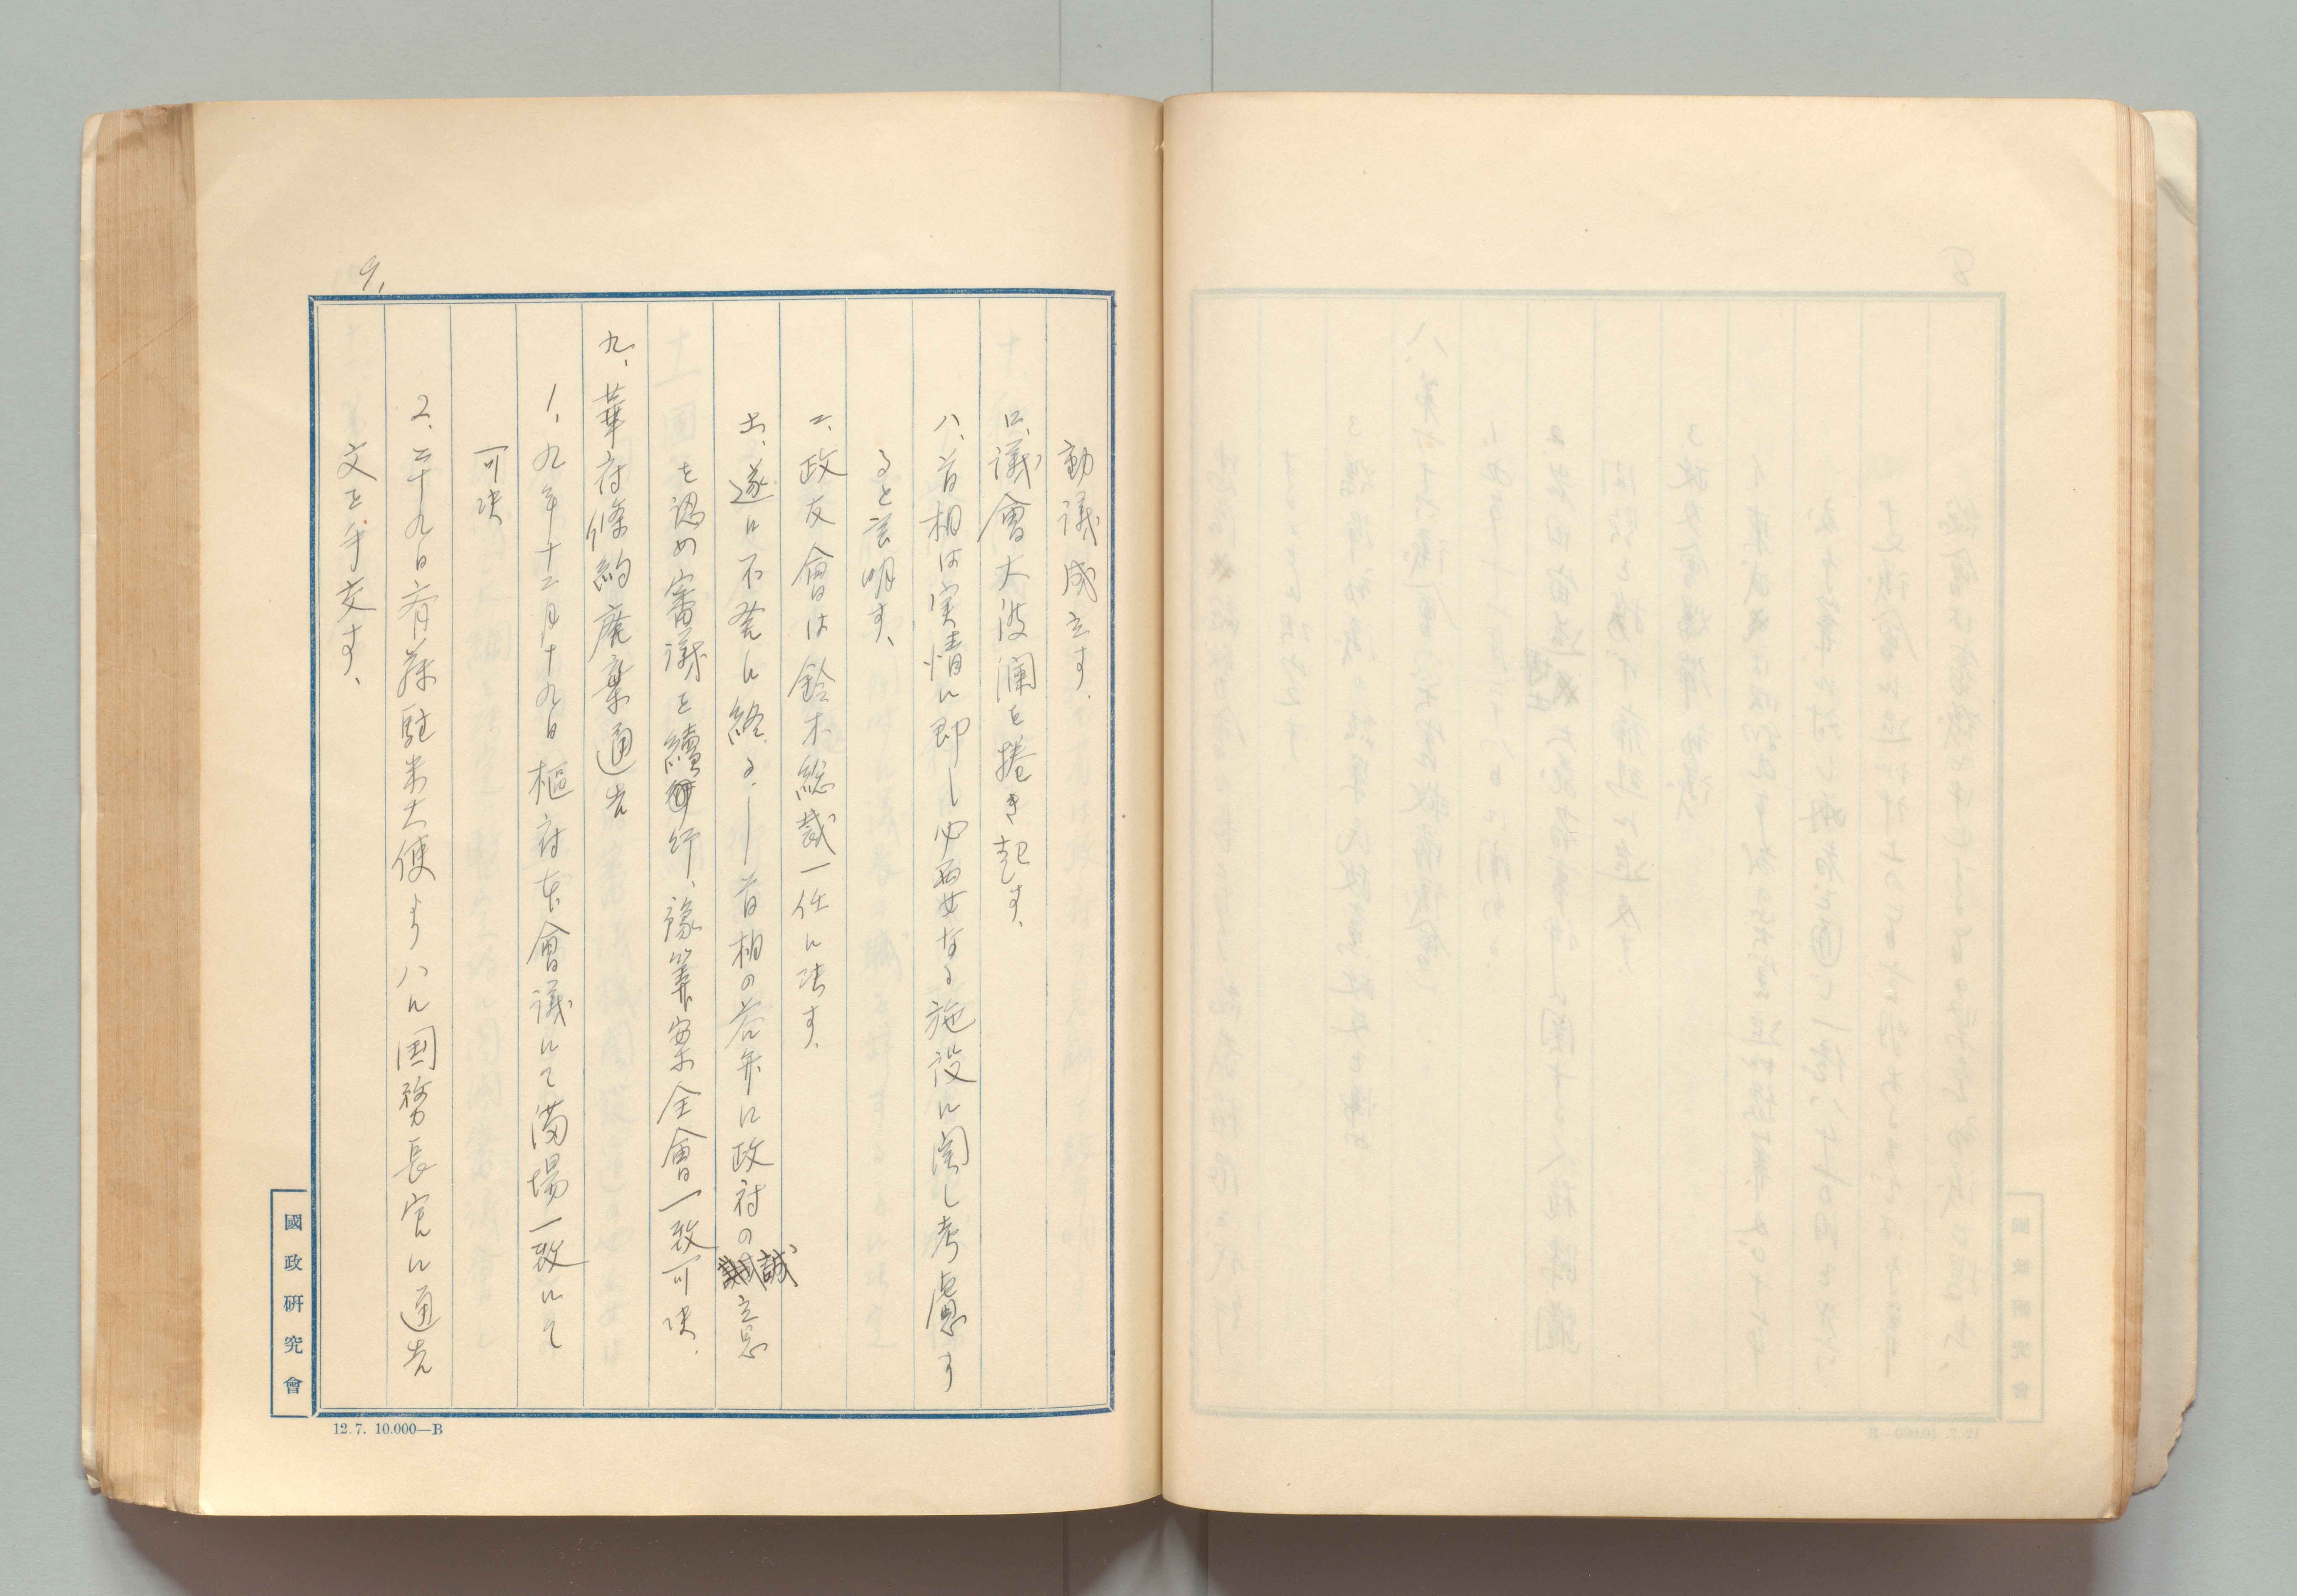 9.
動議成立す.
ロ、議會大波瀾を捲き起す、
ハ、首相は実情に即し必要なる施設に関し考慮す
ると言明す、
ニ、政友會は鈴木総裁一任に決す.
ホ、遂に不発に終る.—首相の答弁に政府の誠意
を認め審議を續行、豫算案全會一致可決.
九、華府條約廃棄通告
1、九年十二月十九日樞府本會議にて満場一致にて
可決
2、二十九日斎藤駐米大使よりハル国務長官に通告
文を手交す、
國政研究會
12.7. 10.000—B